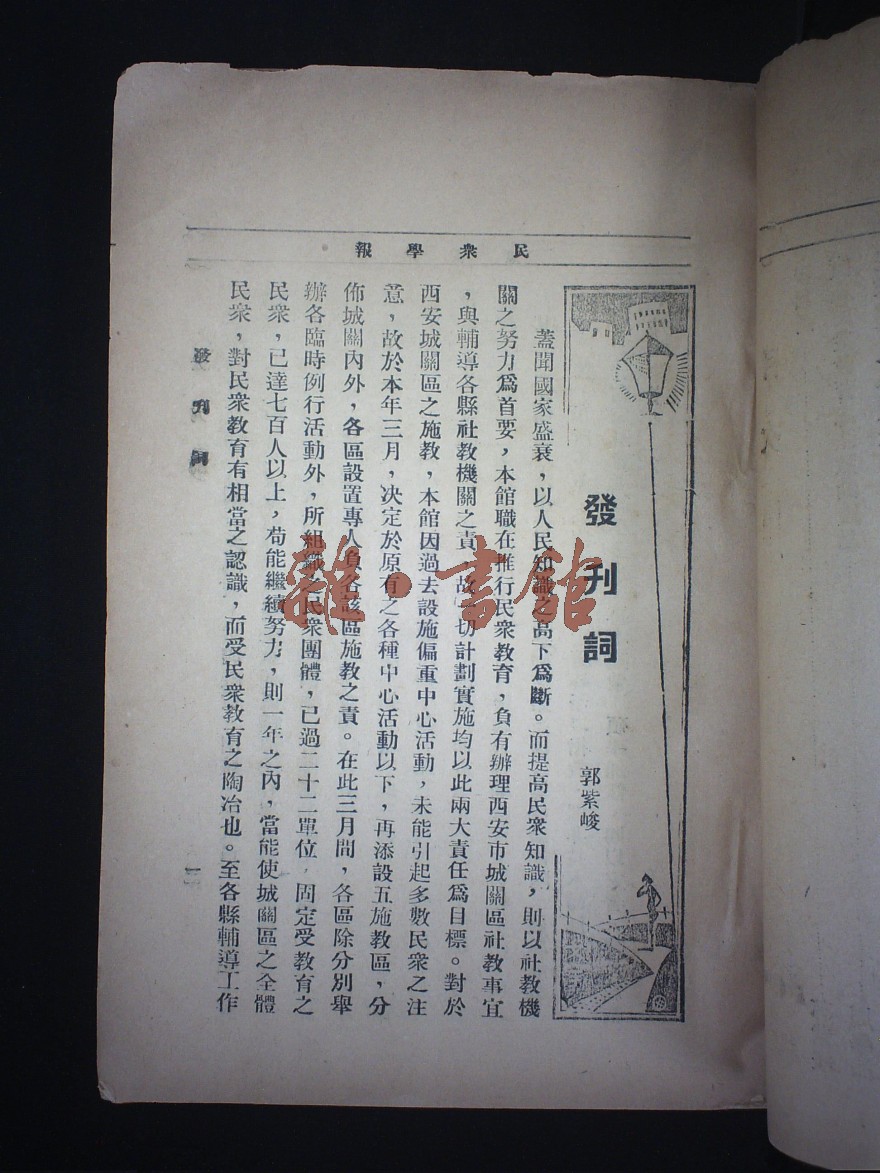 民衆學報
發刊詞
郭紫峻
蓋聞國家盛衰，以人民知識之高下爲斷。而提高民衆知識，則以社教機
關之努力爲首要，本館職在推行民衆教育，負有辦理西安市城關區社教事宜
，與輔導各縣社教機關之責，故一切計劃實施均以此兩大責任爲目標。對於
西安城關區之施教，本館因過去設施偏重中心活動，未能引起多數民衆之注
意，故於本年三月，决定於原有之各種中心活動以下，再添設五施教區，分
佈城關內外，各區設置專人負各該區施教之責。在此三月間，各區除分別舉
辦各臨時例行活動外，所組織之民衆團體，已過二十二單位，固定受教育之
民衆，已達七百人以上，苟能繼續努力，則一年之內，當能使城關區之全體
民衆，對民衆教育有相當之認識，而受民衆教育之陶冶也。至各縣輔導工作
發刊詞
一
雜·書館